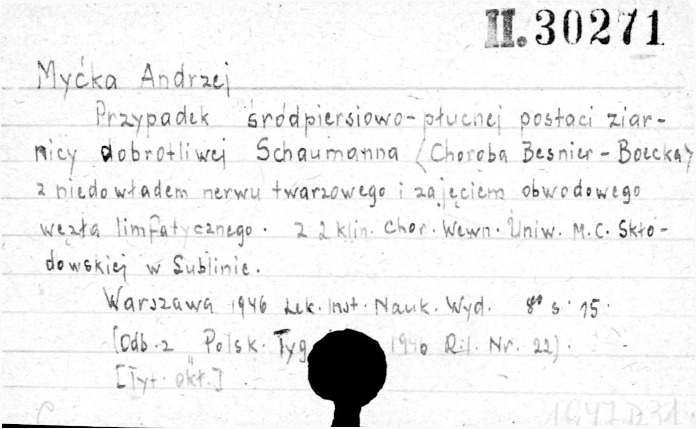 II. 30271
Myćka Andrzej
Przypadek śródpiersiowo-płucnej postaci ziar-
nicy dobrotliwej Schaumanna (Choroba Besnier - Boecka)
z niedowładem nerwu twarzowego i zajęciem obwodowego
węzła limfatycznego. Z 2 klin. Chor. Wewn. Uniw. M.C. Skło-
dowskiej w Lublinie.
Warszawa 1946 Lek. Inst. Nauk. Wyd. 8° s. 15.
(Odb. z Polsk. Tyg. 1946 R.I. Nr. 22).
[Tyt. okł.]